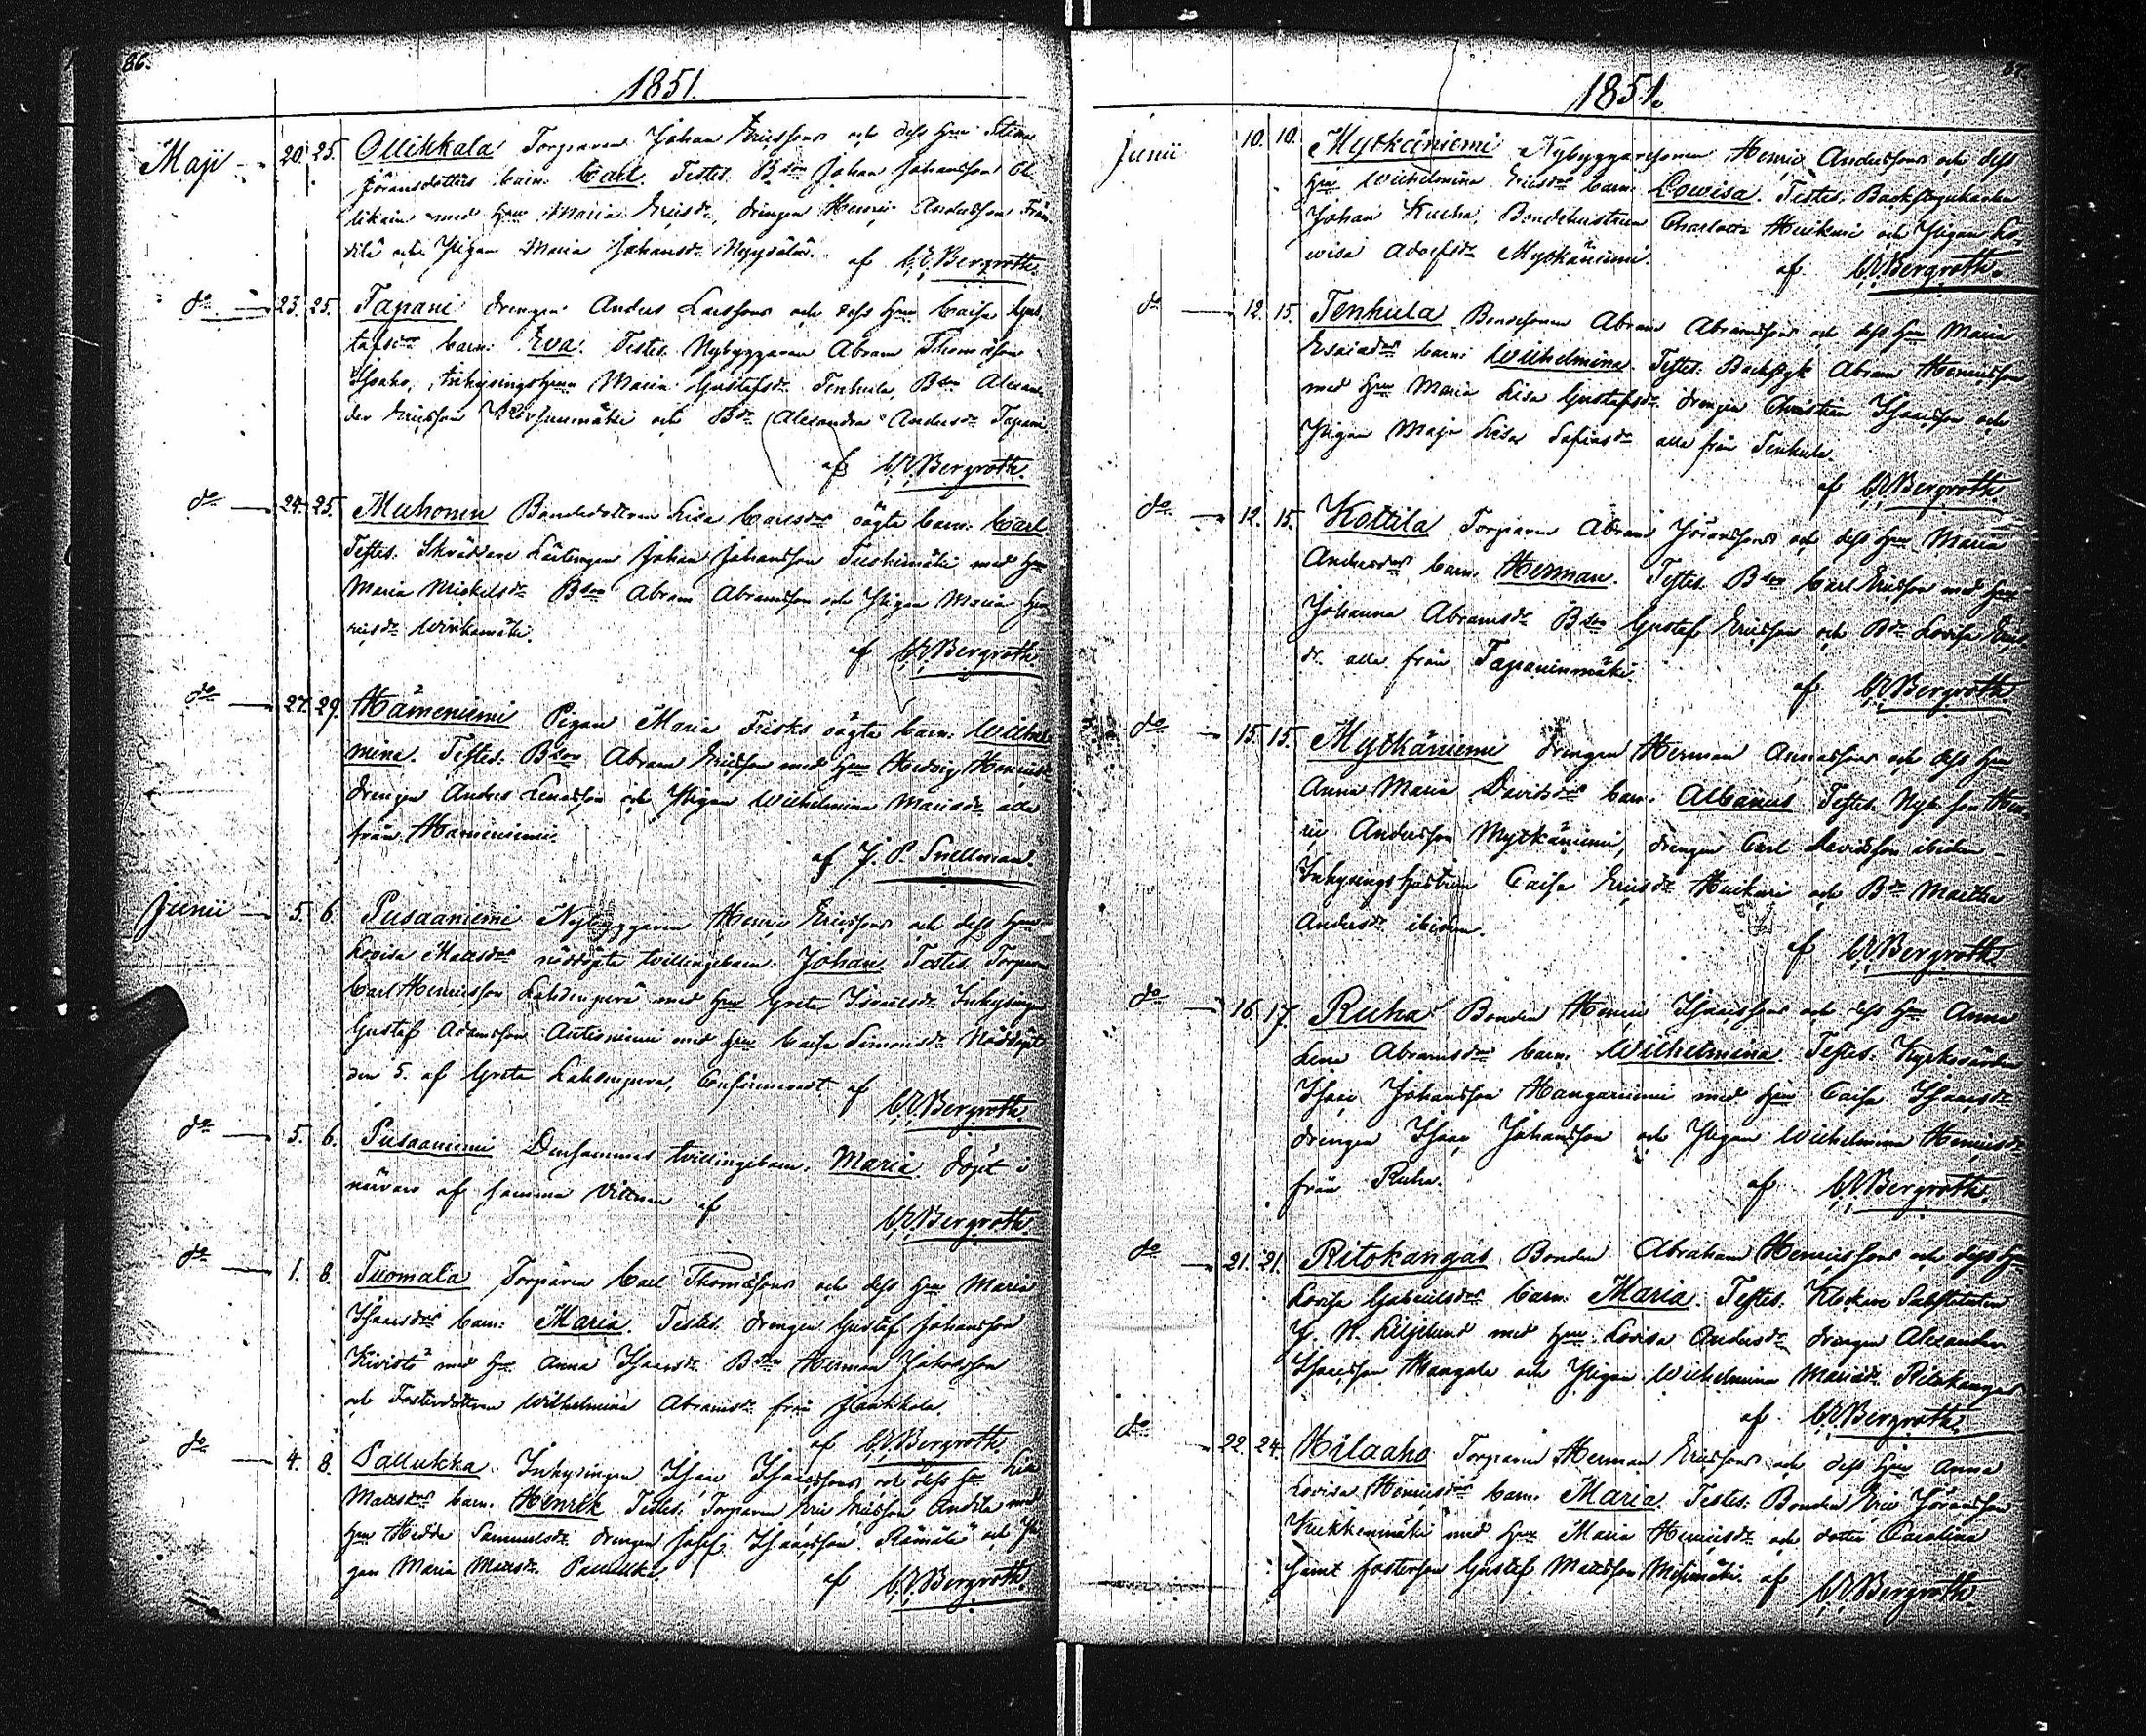 86.
1851.
Maji 20. 25. Ollikkala Torparen Johan Ericssons och dess Hru Stina
Göransdotters barn: Carl. Testes. Bdn Johan Johansson
likain med Hru Maria Ericsdr, drengen Henric Andersson
och Pigan Maria Johansdr af C.E. Bergroth.
do 23. 25. Tapani drengen Anders Larssons och dess Hru Caisa Gus-
tafsdrs barn: Eva. Testes. Nybyggaren Abram Thomasson
Isoaho, Inhysingshrun Maria Gustafsdr Tenhula, Bdn Alexan-
der Ericsson och Bdr Alexandra Andersdr Tapani
af C.E. Bergroth.
do 24. 25. Muhonen Bondedottren Lisa Carlsdrs oägta barn: Carl
Testes. Skräddare Lärlingen Johan Johansson med Hru
Maria Mickelsdr Bdn Abram Abramsson och Pigan Maria Hen-
ricsdr Wirkamäki.
af C.E. Bergroth.
do 27. 29. Hämeniemi Pigan Maria Frisks oägta barn: Wilhel-
mina. Testes. Bdn Abram Ericsson med Hru Hedvig Henricsdr
drengen Anders Lenasson och Pigan Wilhelmina Mariasdr alla
från Hämeniemi.
af J. P. Snellman.
Junii 5. 6. Pusaaniemi Nybyggaren Henric Ericssons och dess Hru
Lovisa Matsdrs nöddöpta tvillingebarn: Johan. Testes. Torparen
Carl Henricsson Lahdenperä med Hru Greta Israelsdr Inhysingen
Gustaf Adamsson med Hru Caisa Simonsdr Nöddöpt
den 5. af Greta Lahdenperä, Confirmerat af
C.E. Bergroth.
do 5. 6. Pusaaniemi Densammes tvillingebarn: Maria döpt i
närvaro af samma vittnen af
C.E. Bergroth.
do 1. 8. Tuomala Torparen Carl Thomassons och dess Hru Maria
Isaacsdrs barn: Maria. Testes. drengen Gustaf Johansson
Kivistö med Hru Anna Isaacsdr Bdn Herman Jakobsson
och Fosterdottren Wilhelmina Abramsdr från Jankkola.
af C.E. Bergroth.
do 4. 8. Pallukka Inhysingen Isaac Isaacssons och dess Hru Lisa
Matsdrs barn: Henrik Testes. Torparen Eric Ericsson Anttila med
Hru Hedda Samuelsdr drengen Josef Isaacsson Rämälä och Pi-
gan Maria Matsdr Pallukka af C.E. Bergroth.
87.
1851.
Junii 10. 10. Mytkäniemi Nybyggaresonen Henric Anderssons och dess
Hru Wilhelmina Ericsdrs barn: Lowisa. Testes. Backstugukarlen
Johan Kucha, Bondehustrun Charlotta Huikari och Pigan Lo-
wisa Adolfsdr Mytkäniemi.
af C.E. Bergroth.
do 12. 15. Tenhula Bondesonen Abram Abramssons och dess Hru Maria
Esaiadrs barn: Wilhelmina. Testes. Backstgk Abram Henricsson
med Hru Maria Lisa Gustafsdr drengen Christian Isaacsson och
Pigan Maja Lisa Safiasdr alla från Tenhula.
af C.E. Bergroth.
do 12. 15. Kottila Torparen Abram Jöranssons och dess Hru Maria
Andersdrs barn: Herman. Testes. Bdn Carl Ericsson med Hru
Johanna Abramsdr Bdn Gustaf Ericsson och Bdr Lovisa Erics-
dr alla från Tapaninmäki.
af C.E. Bergroth.
do 15. 15. Mytkäniemi drengen Herman Annassons och dess Hru
Anna Maria Davidsdrs barn: Albanus Testes. Nyb. son Hen-
ric Andersson Mytkäniemi, drengen Carl Davidsson ibidem
Inhysingshustrun Caisa Ericsdr Huikari och Bdr Martha
Andersdr ibidem.
af C.E. Bergroth.
do 16. 17. Ruha Bonden Henric Isaacssons och dess Hru Anna
Lena Abramsdrs barn: Wilhelmina. Testes. Kyrkovärden
Isaac Johansson Kangasniemi med Hru Caisa Isaacsdr
drengen Isaac Johansson och Pigan Wilhelmina Henricsdr
från Ruha. af C.E. Bergroth.
do 21. 21. Ritokangas Bonden Abraham Henricssons och dess Hru
Lovisa Gabrielsdrs barn: Maria. Testes. Klockare Substituten
J. H. Liljelund med Hru Lovisa Andersdr drengen Alexander
Isaacsson Kangala och Pigan Wilhelmina Mariasdr Ritokangas
af C.E. Bergroth.
do 22. 24. Hilaaho Torparen Herman Ericssons och dess Hru Anna
Lovisa Henricsdrs barn: Maria. Testes. Bonden Eric Jöransson
Kukkenmäki med Hru Maria Henricsdr och dotter Carolina
samt fosterson Gustaf Mattsson af C.E. Bergroth.